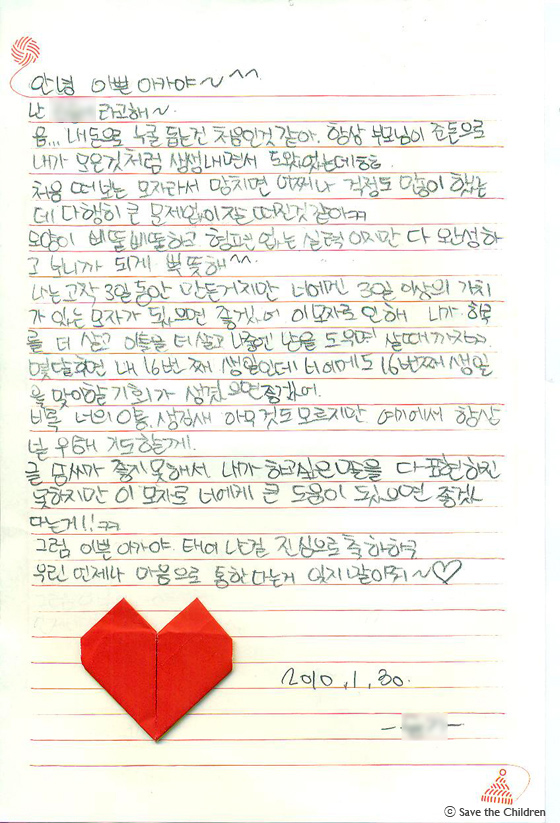 안녕 이쁜 아가야~^^
난 라고해~.
음... 내돈으로 누굴 돕는건 처음인것 같아. 항상 부모님이 준돈으로
내가 모은것처럼 생생내면서 도와왔었는데ㅎㅎ.
처음 떠보는 모자라서 망치면 어쩌나 걱정도 많이 했는
데 다행히 큰 문제없이 잘 떠진것 같아ㅋㅋ
모양이 삐뚤삐뚤하고 형편 없는 실력이지만 다 완성하
고 보니까 되게 뿌듯해^^
나는 고작 3일동안 만든거지만 너에겐 30일 이상의 가치
가 있는 모자가 됐으면 좋겠어 이 모자로 인해 니가 하루
를 더 살고 이틀을 더 살고 나중엔 남을 도우며 살때까지
몇달후면 내 16번 째 생일인데 너에게도 16번째 생일
을 맞이할 기회가 생겼으면 좋겠어.
비록 너의 이름, 생김새 아무것도 모르지만 여기에서 항상
널 위해 기도할게.
글 솜씨가 좋지 못해서 내가 하고싶은 말들을 다 표현하진
못하지만 이 모자로 너에게 큰 도움이 됐으면 좋겠
다는거!!ㅋㅋ
그럼 이쁜 아가야. 태어난걸 진심으로 축하하구
우린 언제나 마음으로 통한다는거 잊지말아줘~♡
2010.1.30.
ⓒ Save the Children